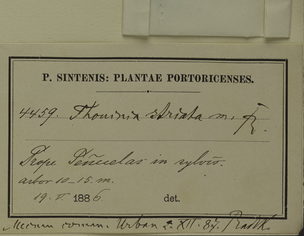 P. SINTENIS: PLANTAE PORTORICENSES.
4459. Thouinia striata m. fr.
Prope Peñuelas in sylvis.
arbor 10-15 m.
19. V 1886 det.
comm. Urban 2. XII. 87. Radlk.